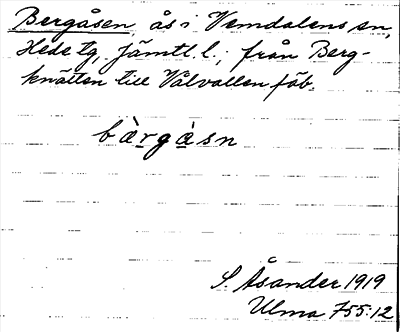 Bergåsen, ås i Vemdalens sn,
Hede tg, Jämtl. l.; från Berg-
knätten till Valvallen fäb.
bàrgàsn
S. Åsander 1919
Ulma 755:12